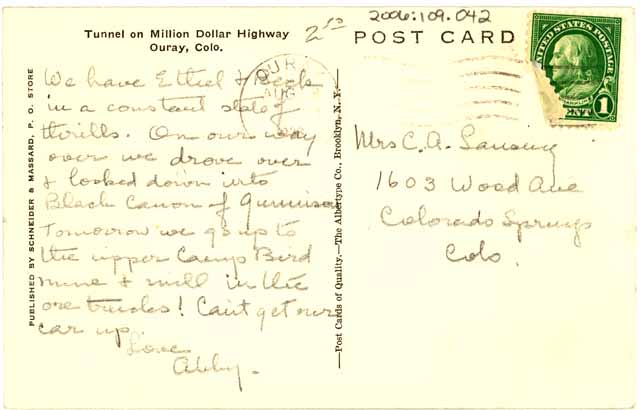 2006:109.042
Tunnel on Million Dollar Highway
Ouray, Colo.
POST CARD
UNITED STATES POSTAGE
FRANKLIN
1
CENT
OURAY
AUG
PUBLISHED BY SCHNEIDER & MASSARD, P. O. STORE
We have Ethel & Beck
in a constant state of
thrills. On our way
over we drove over
& looked down into
Black Canon of Gunnison
Tomorrow we go up to
the upper Camp Bird
mine & mill in the
ore trucks! Can't get our
car up.
Love
Abby.
Post Cards of Quality.—The Albertype Co., Brooklyn, N. Y.
Mrs C. A. Lansing
1603 Wood Ave
Colorado Springs
Colo.